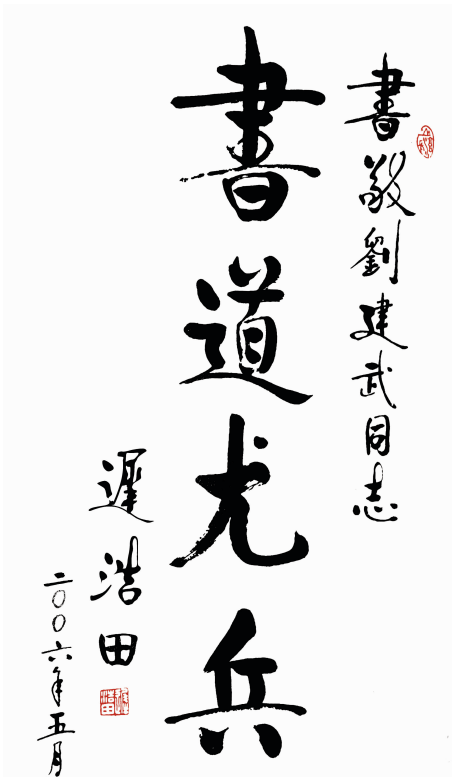 書敬劉建武同志
書道尤兵
遲浩田
二〇〇六年五月